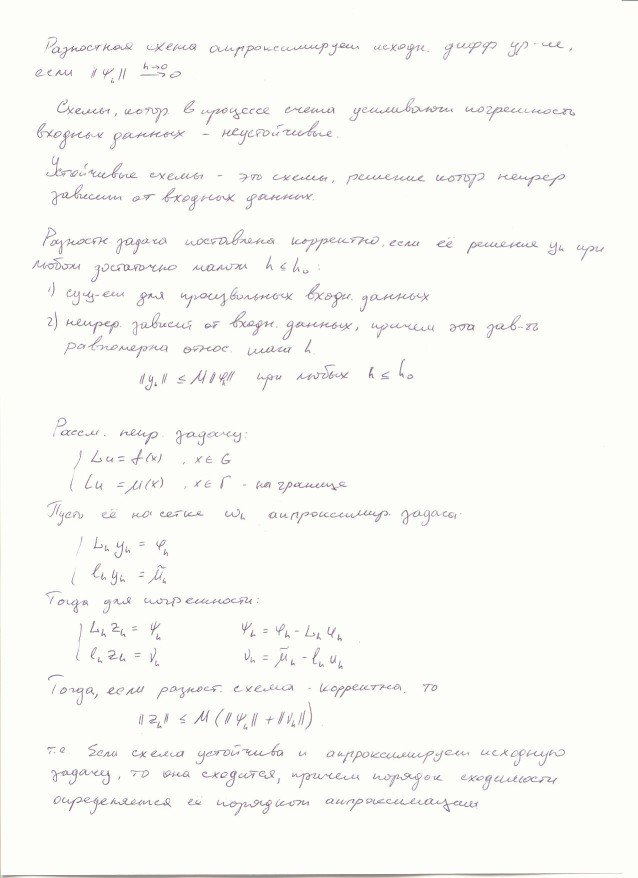 Разностная схема аппроксимирует исходн. дифф ур-ие,
если ‖Ψₕ‖ →(h→0) 0
Схемы, котор. в процессе счета усиливают погрешность
входных данных - неустойчивые.
Устойчивые схемы - это схемы, решение котор непрер
зависит от входных данных.
Разностн задача поставлена корректно, если её решение yₕ при
любом достаточно малом h ≤ h₀:
1) сущ-ет для произвольных входн. данных
2) непрер. зависит от входн. данных, причем эта зав-ть
равномерна относ. шага h.
‖yₕ‖ ≤ M‖φₕ‖ при любых h ≤ h₀
Рассм. непр. задачу:
{ Lu = f(x) , x ∈ G
{ Lu = μ(x) , x ∈ Γ - на границе
Пусть её на сетке ωₕ аппроксимир. задача:
{ Lₕ yₕ = φₕ
{ lₕ yₕ = μ̃ₕ
Тогда для погрешности:
{ Lₕ zₕ = Ψₕ Ψₕ = φₕ - Lₕ uₕ
{ lₕ zₕ = νₕ νₕ = μ̃ₕ - lₕ uₕ
Тогда, если разност. схема - корректна, то
‖zₕ‖ ≤ M (‖Ψₕ‖ + ‖νₕ‖).
т.е Если схема устойчива и аппроксимирует исходную
задачу, то она сходится, причем порядок сходимости
определяется её порядком аппроксимации